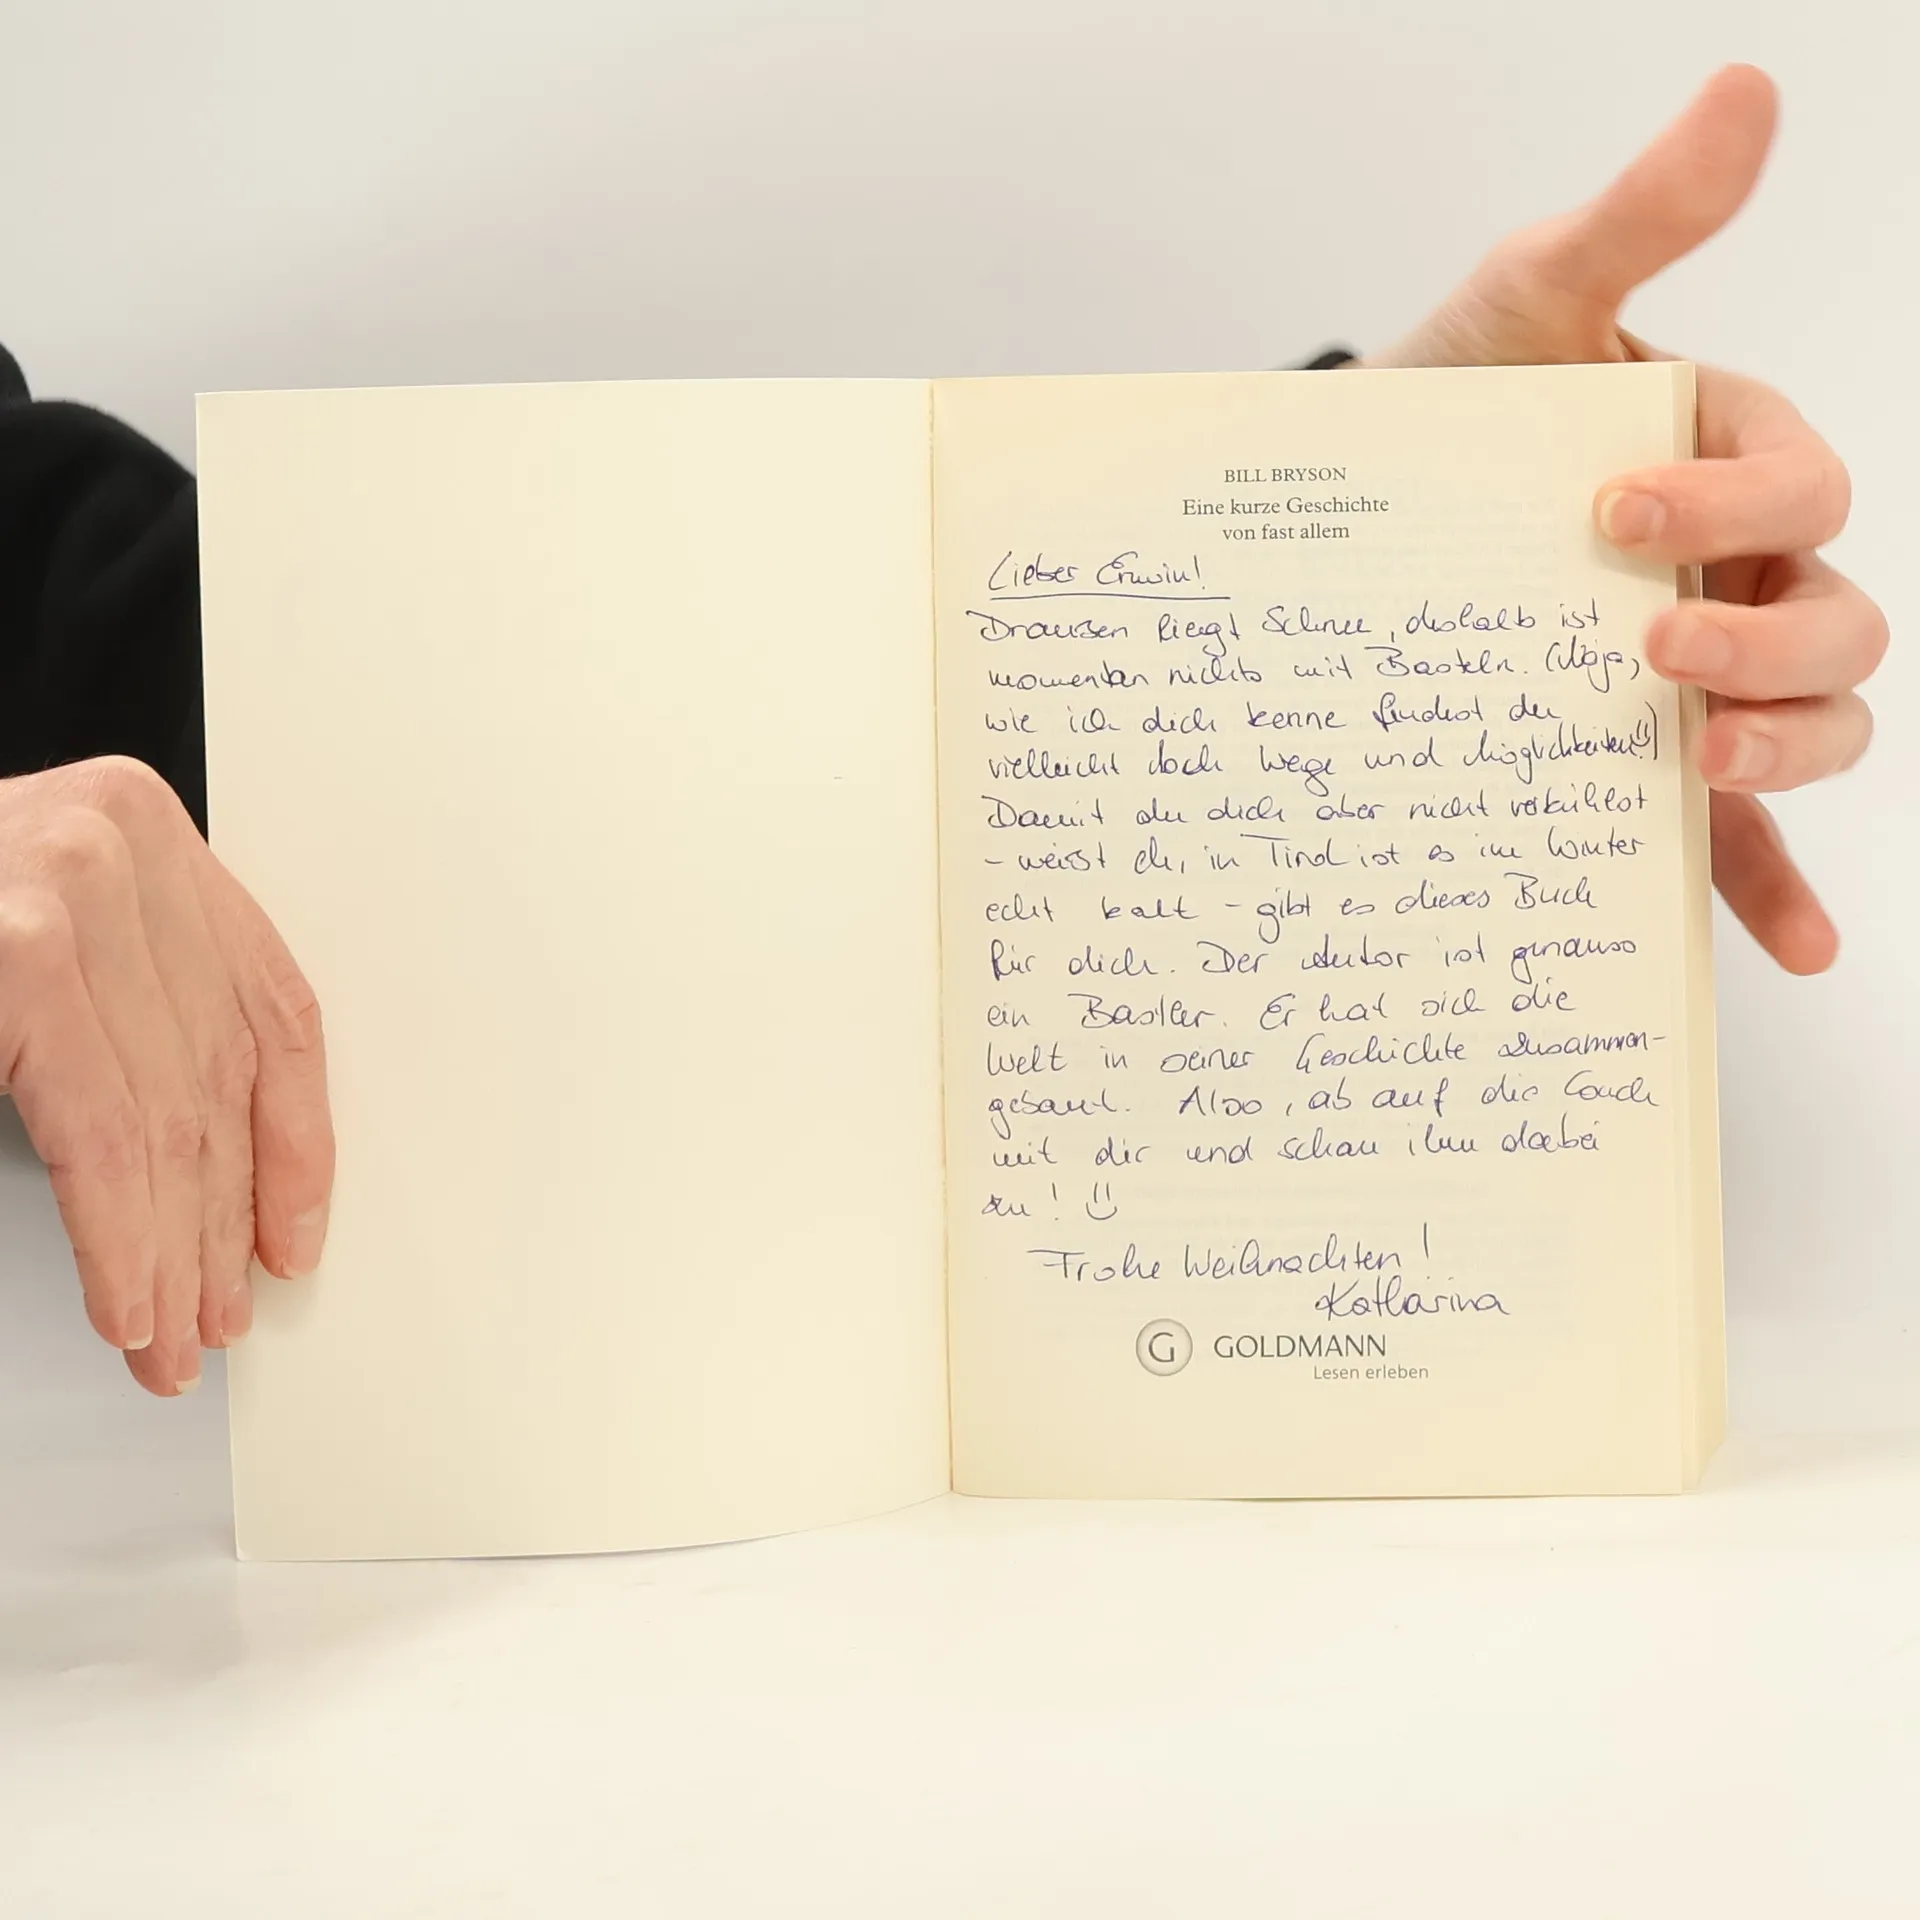 BILL BRYSON
Eine kurze Geschichte
von fast allem
Lieber Erwin!
Draußen liegt Schnee, deshalb ist
momentan nichts mit Basteln. (Naja,
wie ich dich kenne findest du
vielleicht doch Wege und Möglichkeiten!)
Damit du dich aber nicht verkühlst
- weißt eh, in Tirol ist es im Winter
echt kalt - gibt es dieses Buch
für dich. Der Autor ist genauso
ein Bastler. Er hat sich die
Welt in seiner Geschichte zusammen-
gebaut. Also, ab auf die Couch
mit dir und schau ihm dabei
zu!
Frohe Weihnachten!
Katharina
G GOLDMANN
Lesen erleben